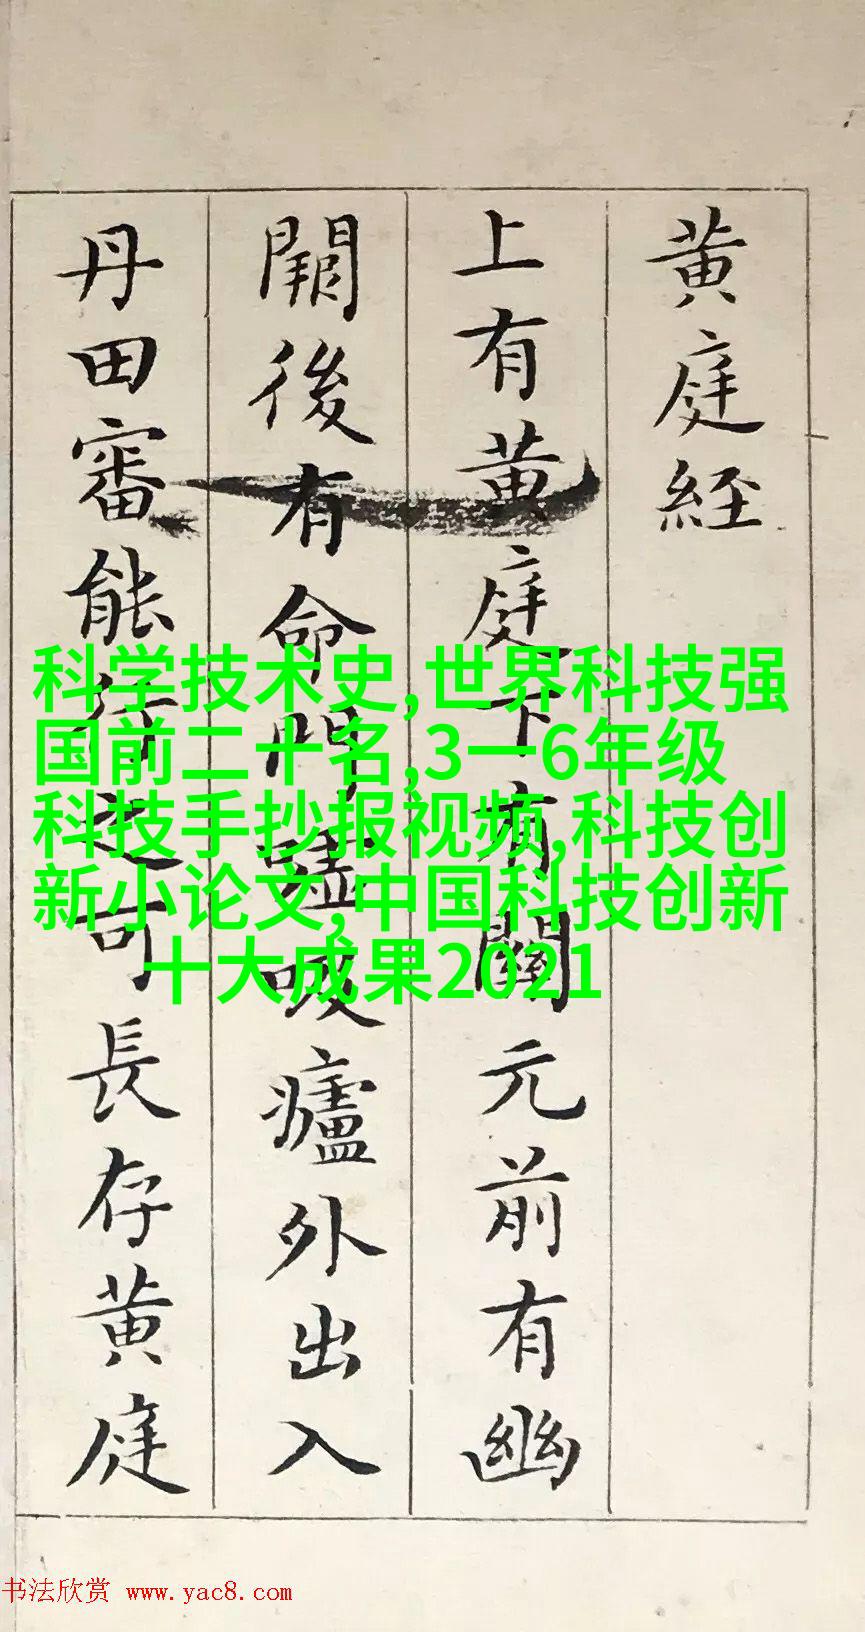 黄庭経
上有黄庭下有關元前有幽
闕後有命門嘘吸廬外出入
丹田審能行之可長存黄庭
科学技术史,世界科技强
国前二十名,3一6年级
科技手抄报视频,科技创
新小论文,中国科技创新
十大成果2021
书法欣赏 www.yac8.com